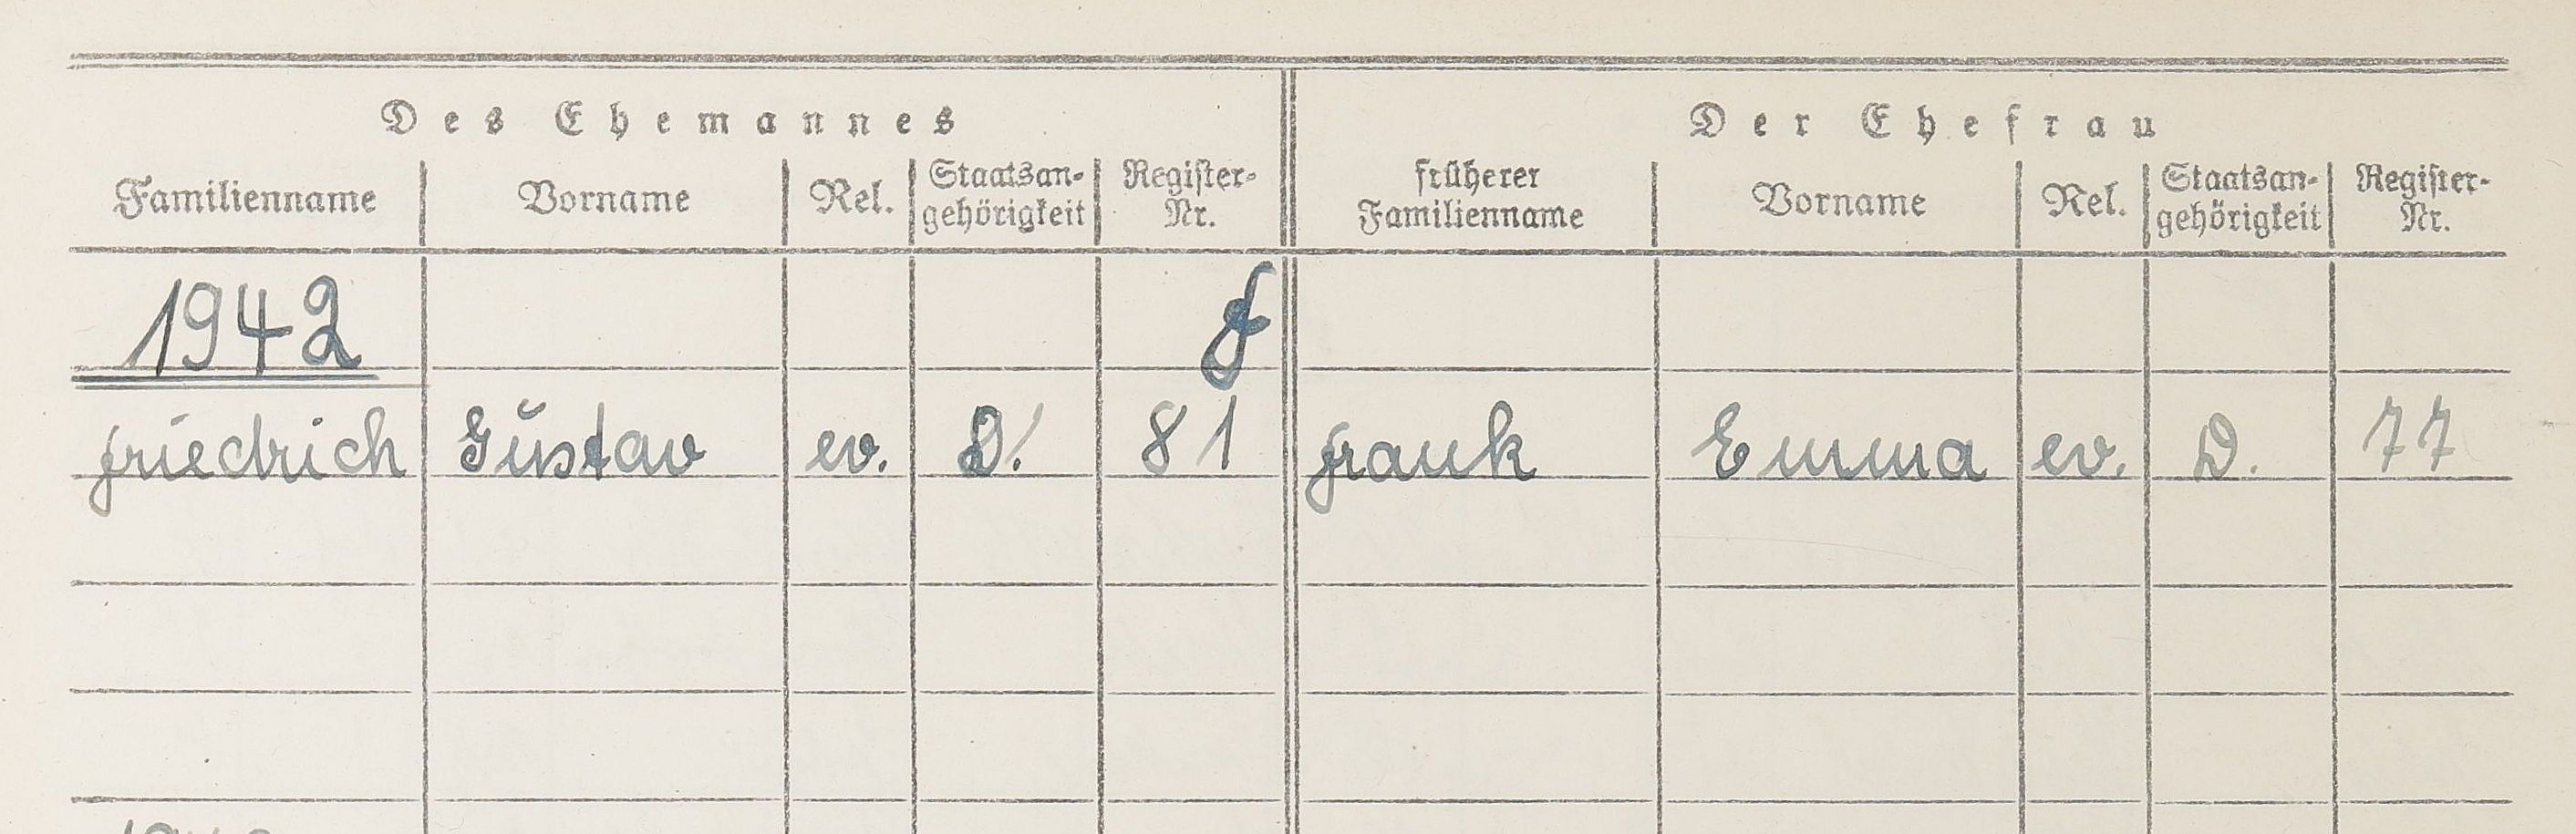 Des Ehemannes Der Ehefrau
Familienname Vorname Rel. Staatsan-gehörigkeit Register-Nr. früherer Familienname Vorname Rel. Staatsan-gehörigkeit Register-Nr.
1942 F
Friedrich Gustav ev. D. 81 Frank Emma ev. D. 77